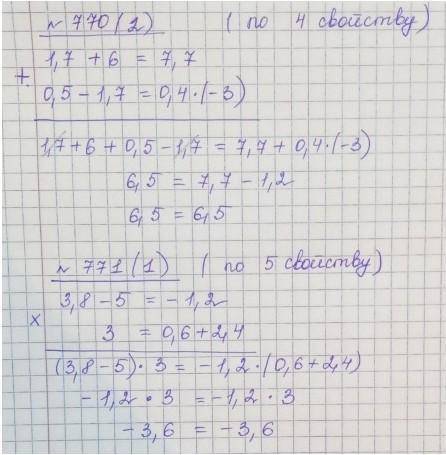 № 770(2) (по 4 свойству)
1,7 + 6 = 7,7
+
0,5 - 1,7 = 0,4·(-3)
1,7 + 6 + 0,5 - 1,7 = 7,7 + 0,4·(-3)
6,5 = 7,7 - 1,2
6,5 = 6,5
№ 771(1) (по 5 свойству)
3,8 - 5 = -1,2
x
3 = 0,6 + 2,4
(3,8 - 5)·3 = -1,2·(0,6 + 2,4)
-1,2 · 3 = -1,2 · 3
-3,6 = -3,6